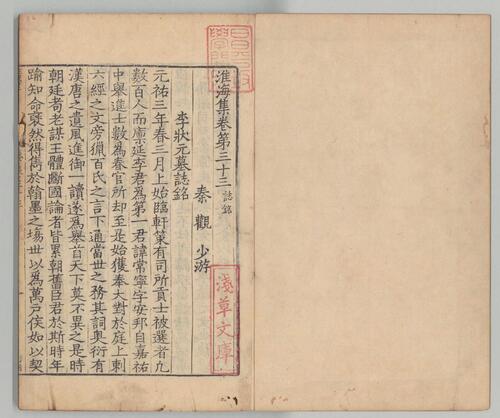 淮海集卷第三十三 誌銘
秦觀 少游
李狀元墓誌銘
元祐三年春三月上始臨軒策有司所貢士被選者九
數百人而廪延李君為第一君諱常寧字安邦自嘉祐
中舉進士數為春官所却至是始獲奉大對於庭上刺
六經之文旁獵百氏之言下通當世之務其詞奥衍有
漢唐之遺風進御一讀遂為舉首天下莫不異之是時
朝廷耇老謀王體斷國論者皆累朝舊臣君於斯時年
踰知命裒然得雋於翰墨之塲世以為萬戶侯如以契
淺草文庫